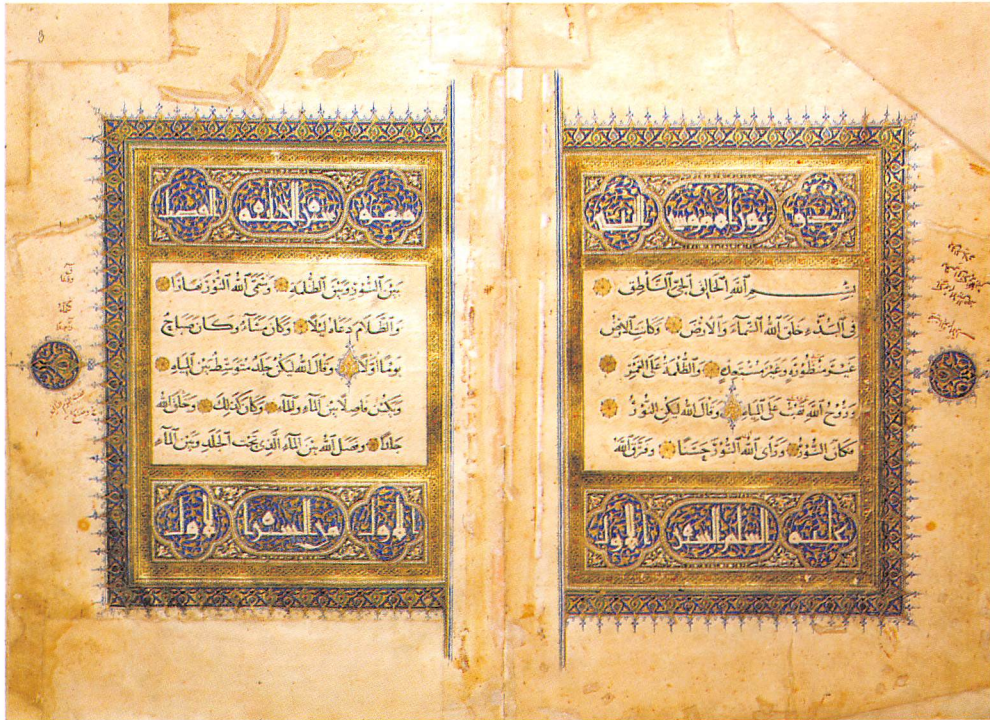 موسى
بِسْمِ ٱللَّهِ ٱلْخَالِقِ ٱلْحَيِّ ٱلنَّاطِقِ
في البدء خلق الله السماء والارض وكانت الارض
غير منظورة وغير مستعدة والظلمة على الغمر
وروح الله على المياه وقال الله ليكن النور
فكان النور وراى الله النور حسنا وفرق الله
عليه السلم السفر الاول
سفر الخليقة الفصل
بين النور وبين الظلمة وسمى الله النور نهارا
والظلام دعاه ليلا وكان مساء وكان صباح
يوما اولا وقال الله ليكن جلد متوسط بين المياه
ويكن فاصلا بين الماء والماء وكان كذلك وخلق الله
جلدا وفصل الله بين الماء الذي تحت الجلد وبين الماء
الاول من السفر الاول